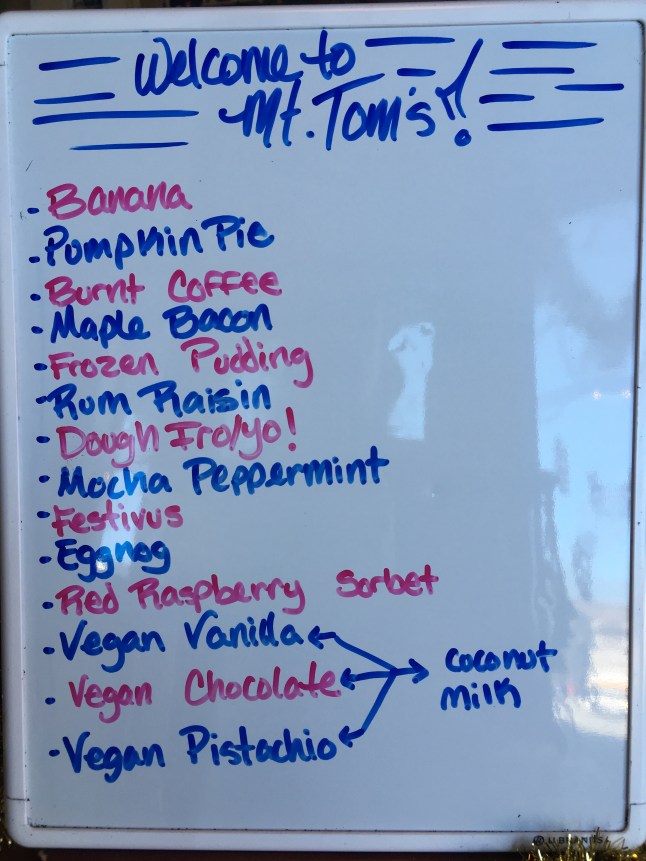 Welcome to
Mt. Tom's!
· Banana
· Pumpkin Pie
· Burnt Coffee
· Maple Bacon
· Frozen Pudding
· Rum Raisin
· Dough Fro/yo!
· Mocha Peppermint
· Festivus
· Eggnog
· Red Raspberry Sorbet
· Vegan Vanilla
· Vegan Chocolate
· Vegan Pistachio
coconut
milk